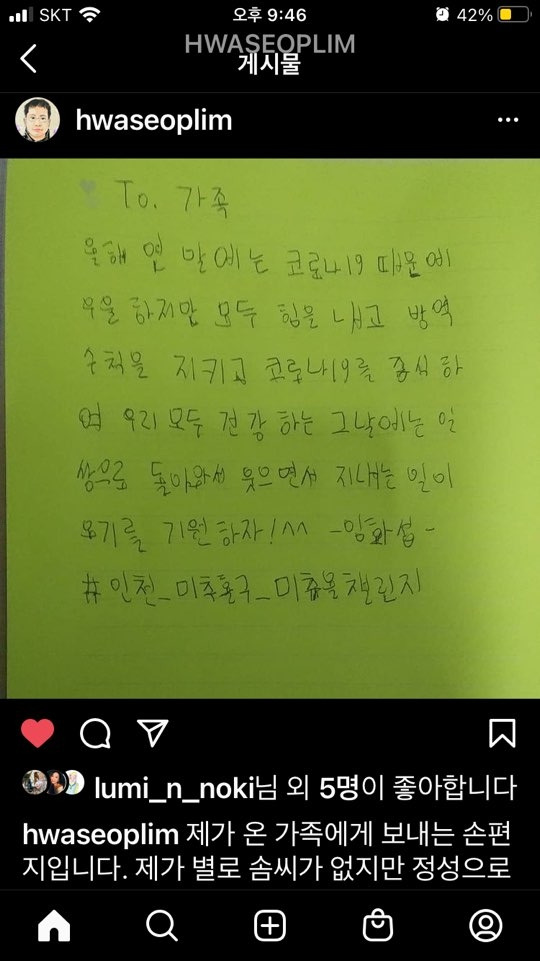 SKT 오후 9:46 42%
HWASEOPLIM
게시물
hwaseoplim
To. 가족
올해 연 말에는 코로나19 때문에
우울 하지만 모두 힘을 내고 방역
수칙을 지키고 코로나19를 종식 하
여 우리 모두 건강 하는 그날에는 일
상으로 돌아와서 웃으면서 지내는 일이
오기를 기원하자!^^ -임화섭-
#인천_미추홀구_미추홀챌린지
lumi_n_noki님 외 5명이 좋아합니다
hwaseoplim 제가 온 가족에게 보내는 손편
지입니다. 제가 별로 솜씨가 없지만 정성으로